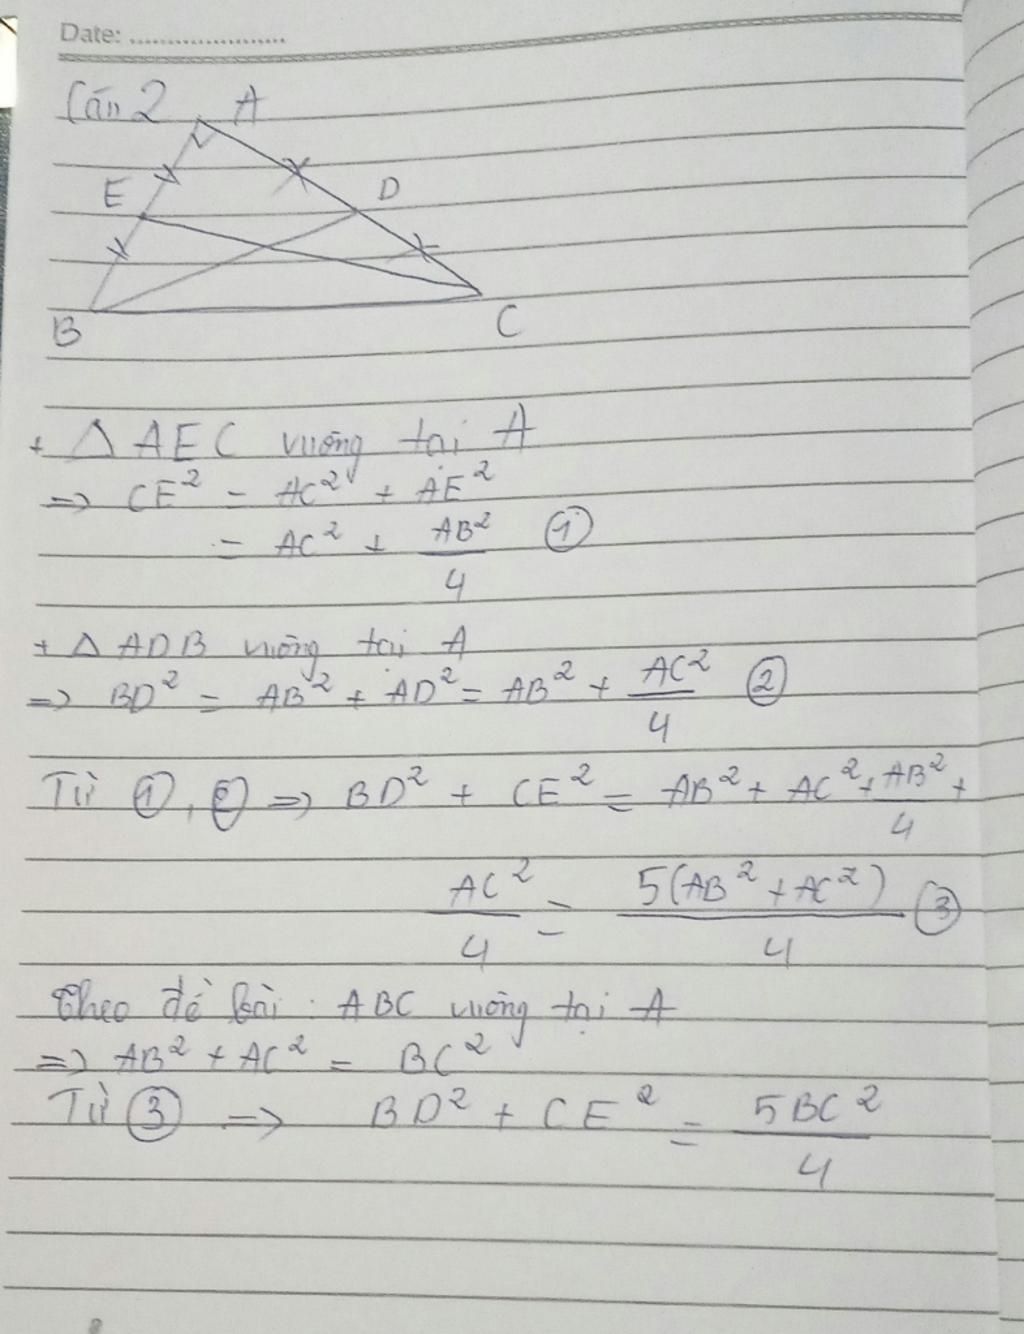 Date: ......................
Câu 2
A
E
D
B
C
+ △ AEC vuông tại A
=> CE² = AC² + AE²
= AC² + AB²/4 ①
+ △ ADB vuông tại A
=> BD² = AB² + AD² = AB² + AC²/4 ②
Từ ①, ② => BD² + CE² = AB² + AC² + AB²/4 +
AC²/4 = 5(AB² + AC²)/4 ③
Theo đề bài : ABC vuông tại A
=> AB² + AC² = BC²
Từ ③ => BD² + CE² = 5BC²/4